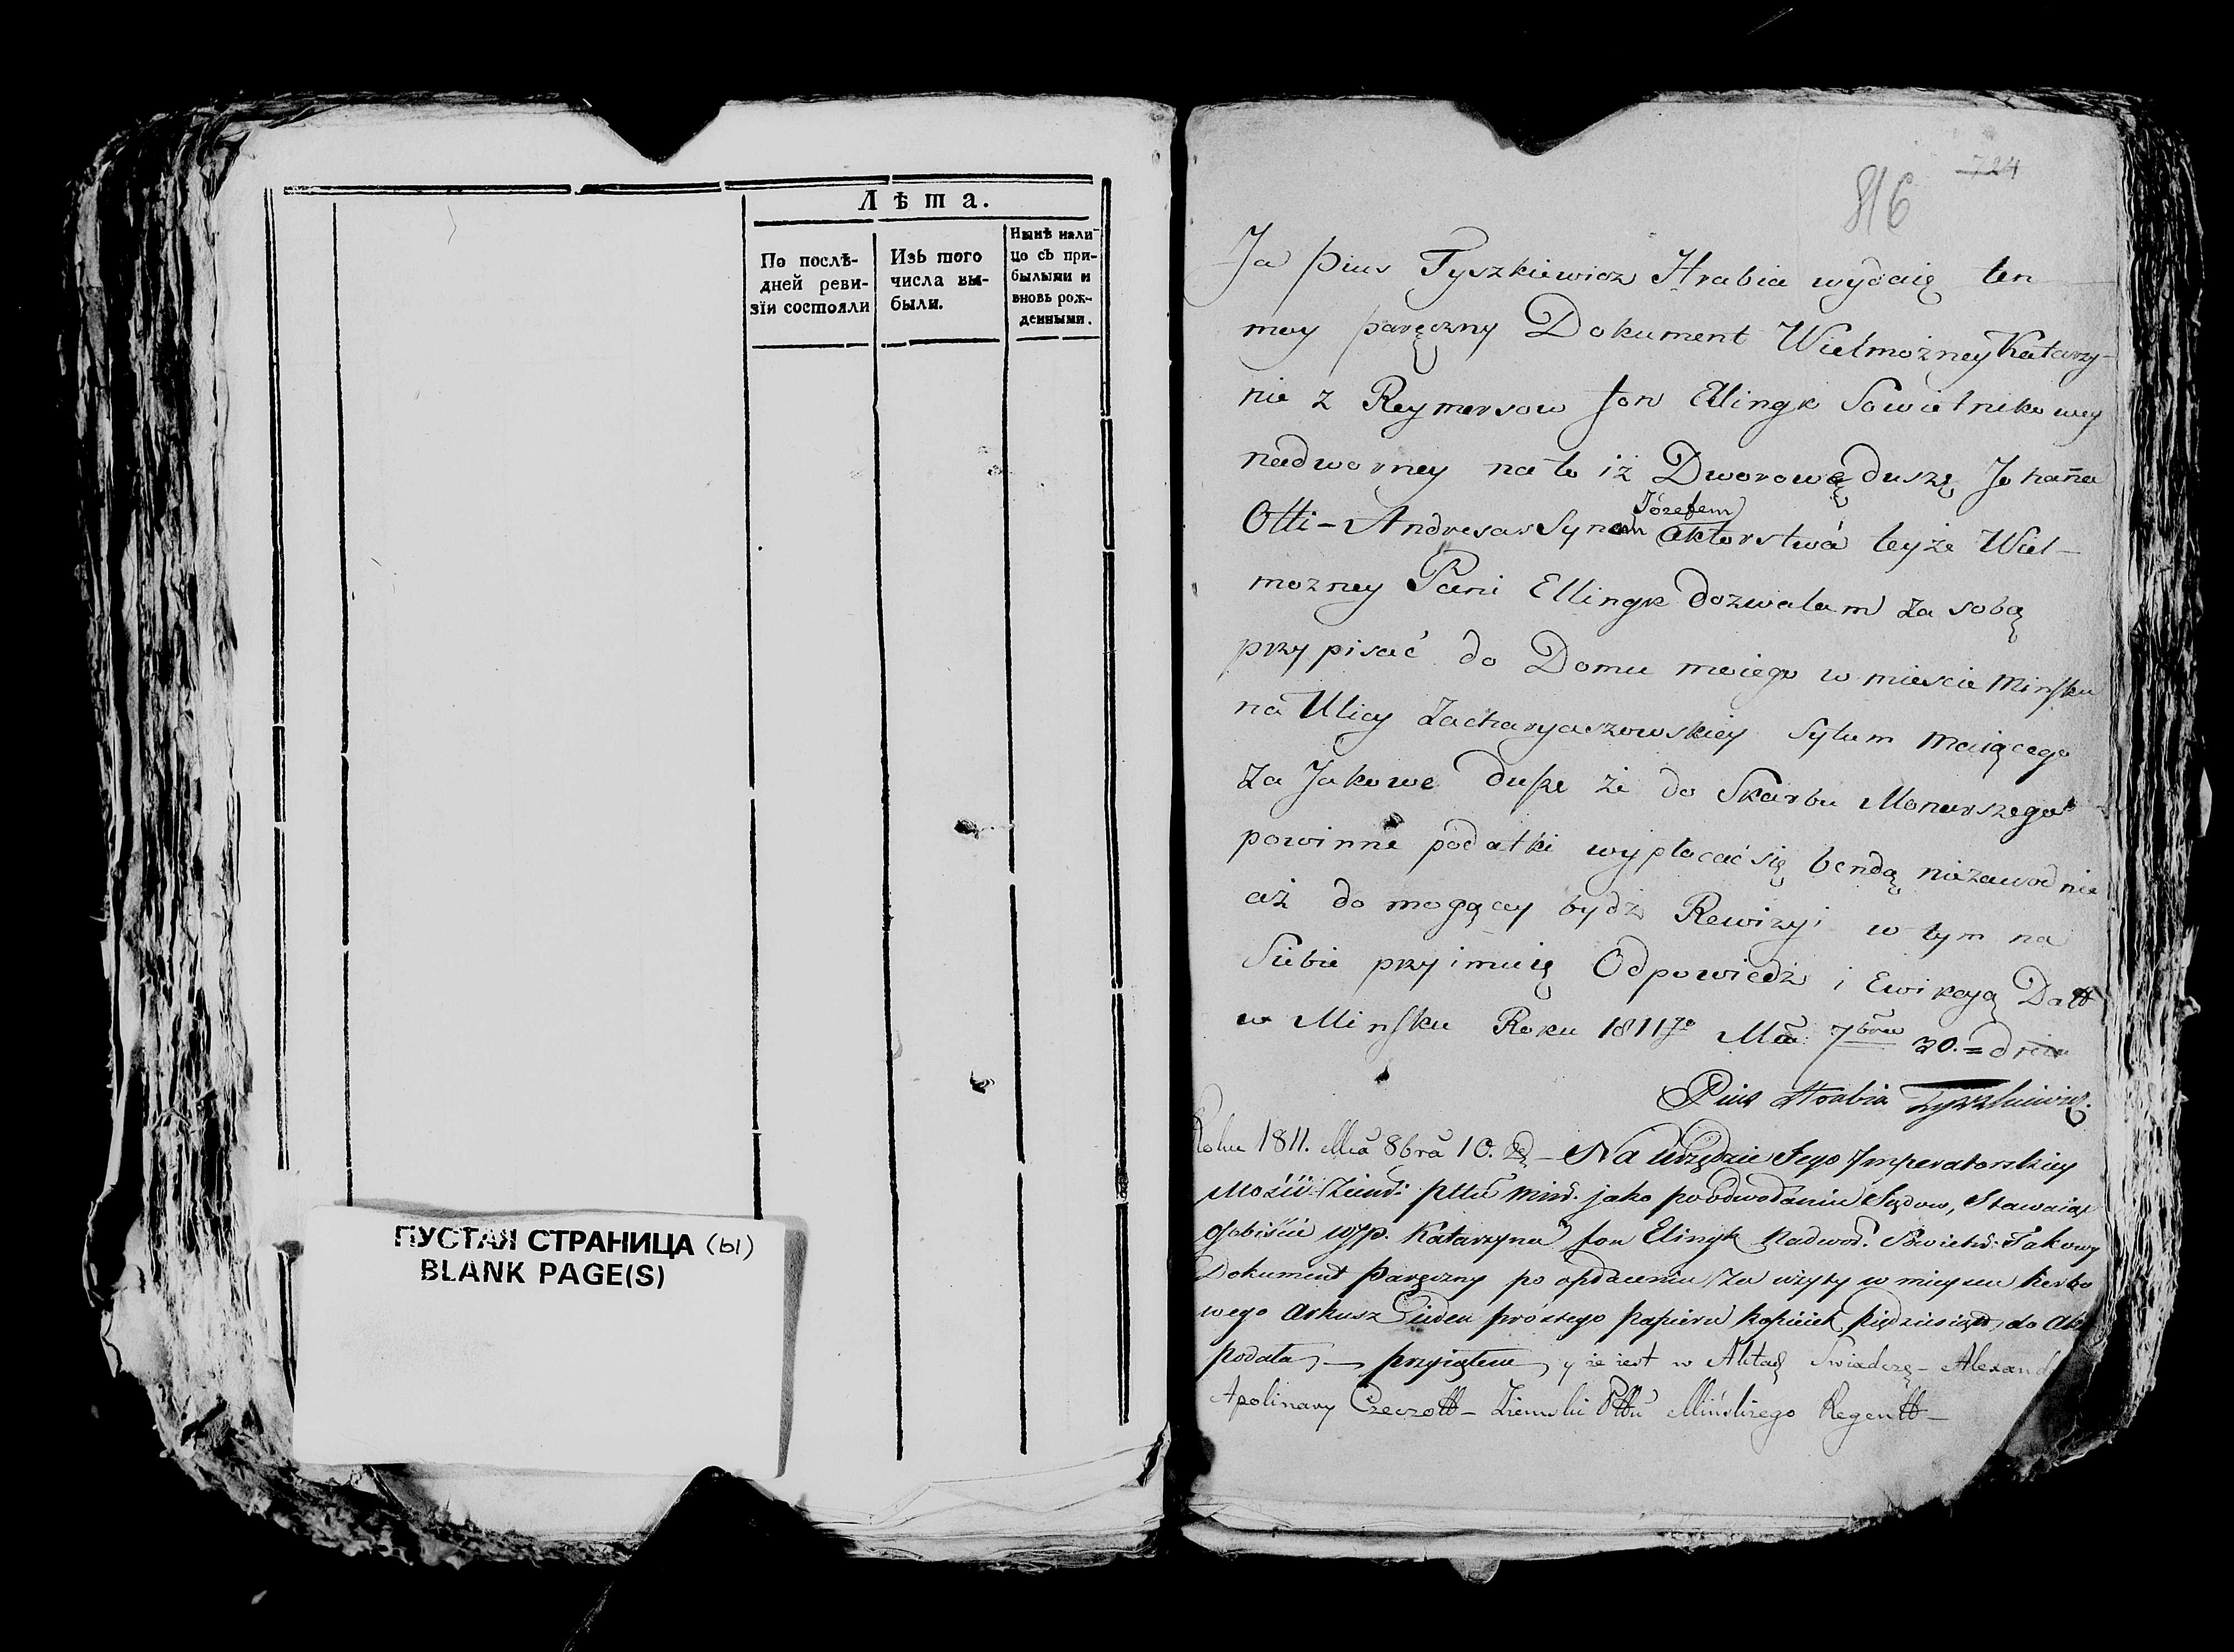 Лѣта.
По послѣ-
дней реви-
зїи состояли
Изъ того
числа вы-
были.
Нынѣ нали-
цо съ при-
былыми и
вновь рож-
денными.
ПУСТАЯ СТРАНИЦА (ы)
BLANK PAGE(S)
724
816
Ja Pius Tyszkiewicz Hrabia wydaię ten
moy paręczny Dokument Wielmożney Katarzy-
nie z Reymersow fon Ellingk Sowietnikowey
nadworney na to iż Dworową duszę Johana
Józefem
Otti-Andresa Synem aktorstwa teyże Wiel-
możney Pani Ellingk dozwalam za sobą
przypisać do Domu moiego w mieście Minsku
na Ulicy Zacharyaszowskiey sytum maiącego
za Jakowe dusze że do Skarbu Monarszego
powinne podatki wypłacać się bendą niezawodnie
aż do mogącey bydź Rewizyi w tym na
Siebie przyimuię Odpowiedź i Ewikcyą Datt
w Minsku Roku 1811go Mca 7bra 30.= dnia
Pius Hrabia Tyszkiewicz.
Roku 1811. Mca 8bra 10. d. – Na Urzędzie Jego Imperatorskiey
Mości Ziem: pttu Miń. jako po odwołaniu Sądow, Stawaiąc
osobiście WJP. Katarzyna fon Elingk Nadwor. Sowietn: Takowy
Dokument paręczny po opłaceniu za użyty w mieyscu herbo
wego arkusz ieden prostego papieru kopieiek piędziesiąt, do Akt
podała, – przyiąłem, y że iest w Aktach Swiadczę – Alexand
Apolinary Czeczott – Ziemski Pttu Mińskiego Regentt –